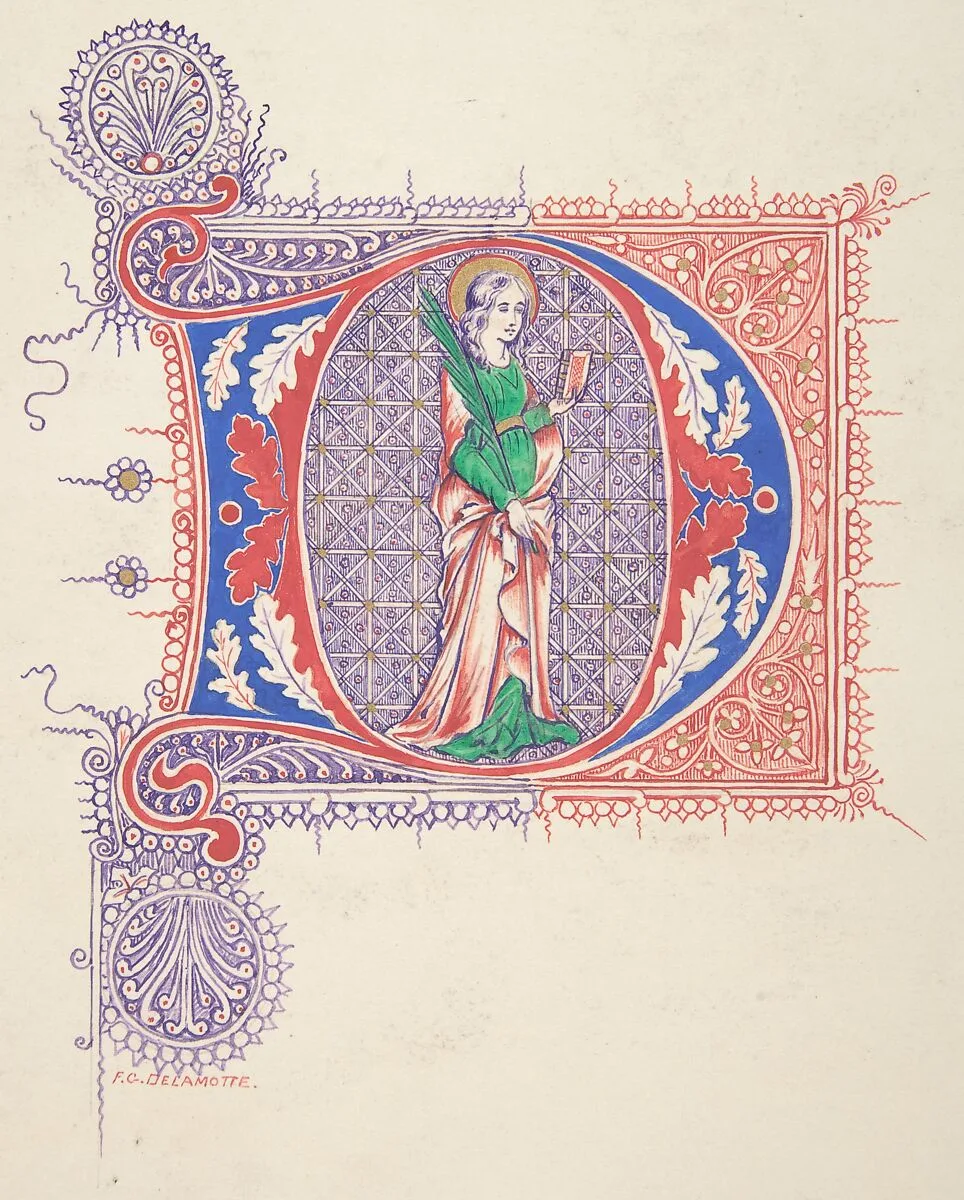 D
F.G. DELAMOTTE.